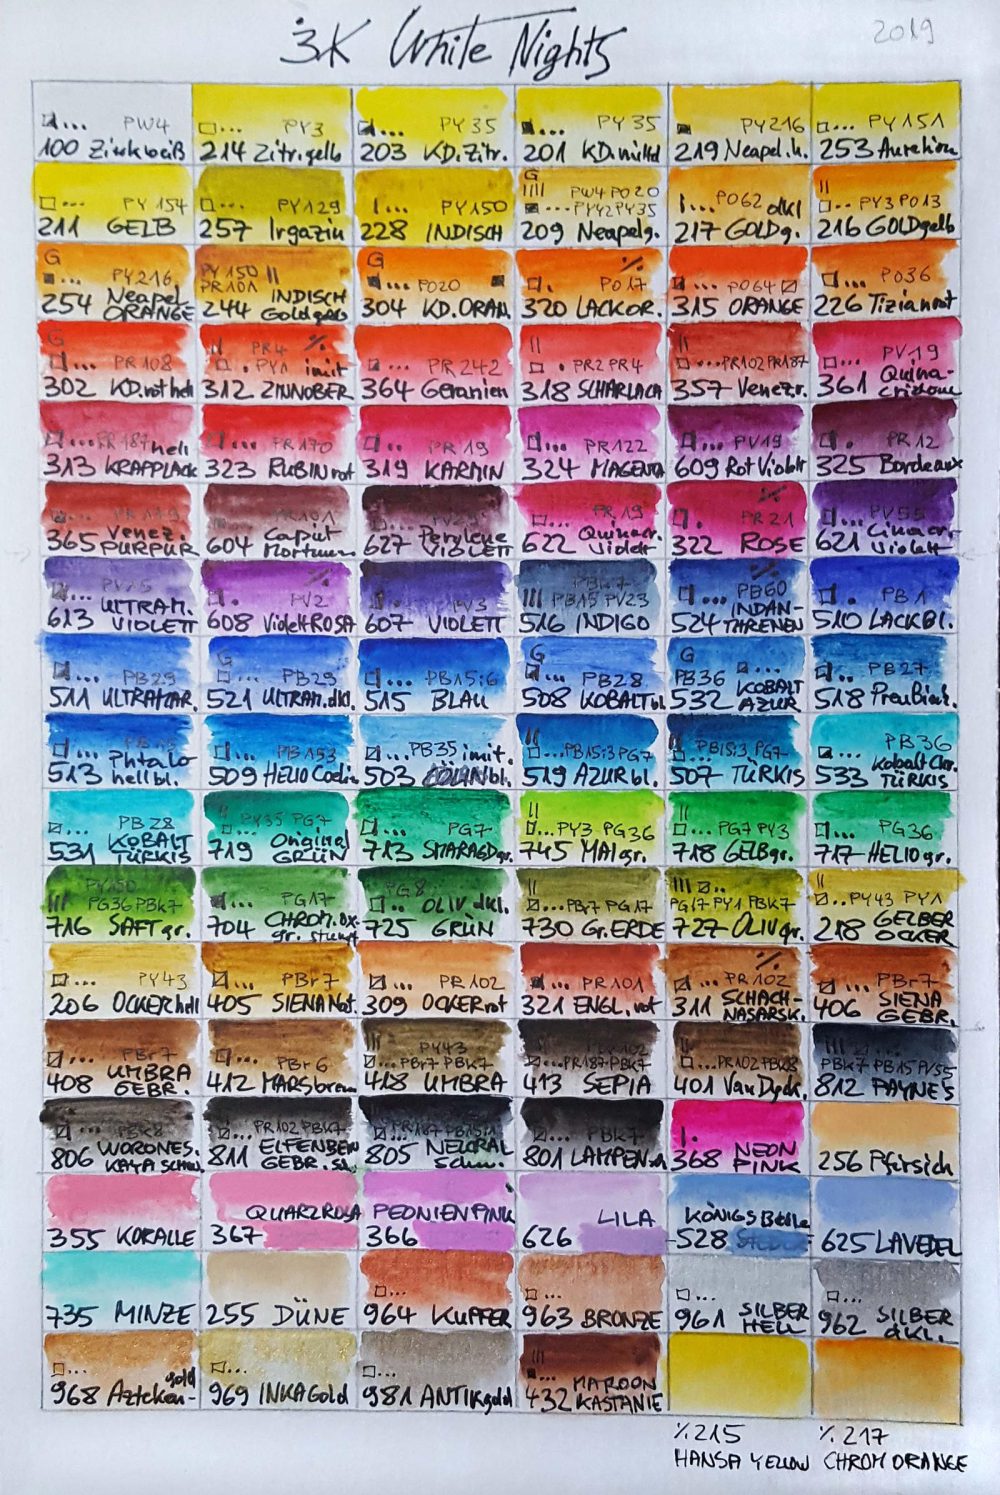 3K White Nights 2019
PW4
100 Zinkweiß
PY3
214 Zitr.gelb
PY35
203 KD.Zitr.
PY35
201 KD.mittel
PY216
219 Neapel.h.
PY151
253 Aureolion
PY 154
211 GELB
PY129
257 Irgazin
PY150
228 INDISCH
G
PW4 PO20
PY42 PY35
209 Neapelg.
PO62 dkl
217 GOLDg.
PY3 PO13
216 GOLDgelb
G
PY216
254 Neapel
ORANGE
PY150
PR101
244 INDISCH
Goldgelb
G
PO20
304 KD.ORAN.
PO17
320 LACKOR.
PO64
315 ORANGE
PO36
226 Tizianrot
G
PR108
302 KD.rot hell
PR4
PY1 imit
312 ZINNOBER
PR242
364 Geranien
PR2 PR4
318 SCHARLACH
PR102 PR187
357 Venez.r.
PV19
361 Quina-
cridone
PR187 hell
313 KRAPPLACK
PR170
323 RUBINrot
PR19
319 KARMIN
PR122
324 MAGENTA
PV19
609 RotViolett
PR12
325 Bordeaux
365 Venez.
PURPUR
PR101
604 Caput
Mortuum
PV29
627 Perylene
VIOLETT
PR19
622 Quinacr.
Violett
PR21
322 ROSE
PV55
621 Cinacr.
Violett
PV15
613 ULTRAM.
VIOLETT
PV2
608 ViolettROSA
PV3
607 VIOLETT
PBk7
PB15 PV23
516 INDIGO
PB60
524 INDAN-
THRENEN
PB1
510 LACKBl.
PB29
511 ULTRAMAR.
G
PB29
521 ULTRAM.dkl.
PB15:6
515 BLAU
G
PB28
508 KOBALTbl
G
PB36
532 KOBALT
AZUR
PB27
518 Preußisch.
513 Phtalo
hellbl.
PB153
509 HELIO Coelin
PB35 imit.
503 bl.
PB15:3 PG7
519 AZURbl.
PB15:3 PG7
507 TÜRKIS
PB36
533 Kobalt Chr.
TÜRKIS
PB28
531 KOBALT
TÜRKIS
PY35 PG7
719 Original
GRÜN
PG7
713 SMARAGDgr.
PY3 PG36
745 MAIgr.
PG7 PY3
718 GELBgr.
PG36
717 HELIOgr.
PY150
PG36 PBk7
716 SAFTgr.
PG17
704 CHROM.ox.
gr. stumpf
PG8
OLIV dkl.
725 GRÜN
PBr7 PG17
730 Gr.ERDE
PG17 PY1 PBk7
727 OLIVgr.
PY43 PY1
218 GELBER
OCKER
PY43
206 OCKERhell
PBr7
405 SIENANat.
PR102
309 OCKERrot
PR101
321 ENGL.rot
PR102
311 SCHACH-
NASARSK.
PBr7
406 SIENA
GEBR.
PBr7
408 UMBRA
GEBR.
PBr6
412 MARSbraun
PY43
PBr7 PBk7
418 UMBRA
PR102
PR187 PBk7
413 SEPIA
PR102 PBk8
401 VanDyck.
PBk7 PB15 PV55
812 PAYNE'S
PBk8
806 WORONES.
KAJA Schw.
PR102 PBk7
811 ELFENBEIN
GEBR.
PR187 PB15:1
805 NEUTRAL
Schw.
PBk7
801 LAMPEN
368 NEON
PINK
256 Pfirsich
355 KORALLE
QUARZROSA
367
PEONIENPINK
366
LILA
626
KÖNIGSBlau
528
625 LAVEDEL
735 MINZE
255 DÜNE
964 KUPFER
963 BRONZE
961 SILBER
HELL
962 SILBER
dkl.
968 Azteken-
gold
969 INKAGold
981 ANTIKgold
432 MAROON
KASTANIE
⁒ 215
HANSA YELLOW
⁒ 217
CHROM ORANGE